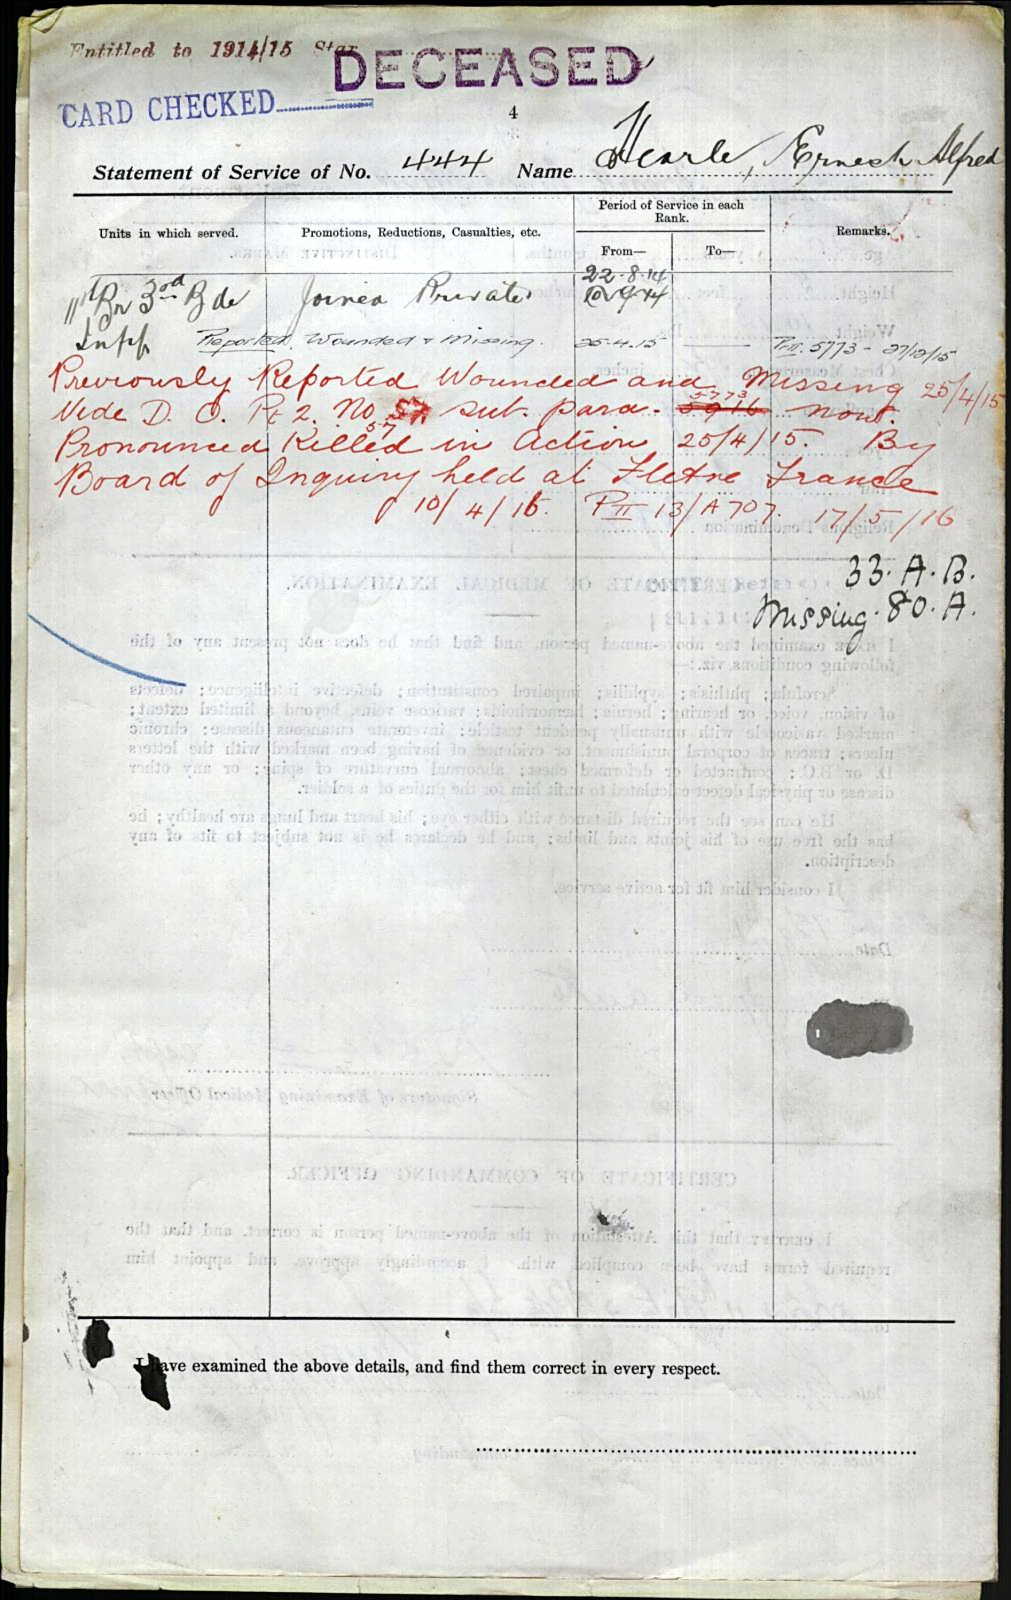 Entitled to 1914/15 Star
DECEASED
CARD CHECKED
4
Statement of Service of No. 444 Name Hearle, Ernest Alfred
Units in which served. Promotions, Reductions, Casualties, etc. Period of Service in each Rank. From— To— Remarks.
22.8.14
11th Bn 3rd Bde Joined Private
Inf Reported Wounded & Missing. 25.4.15 Pt II. 5773 - 27/12/15
Previously Reported Wounded and Missing 25/4/15
Vide D. O. Pt 2. No 57 sub. para. 5916 now.
5773
57
Pronounced Killed in Action 25/4/15. By
Board of Inquiry held at Fletre France
10/4/16. Pt II 13/A707. 17/5/16
33. A. B.
Missing. 80. A.
I have examined the above details, and find them correct in every respect.